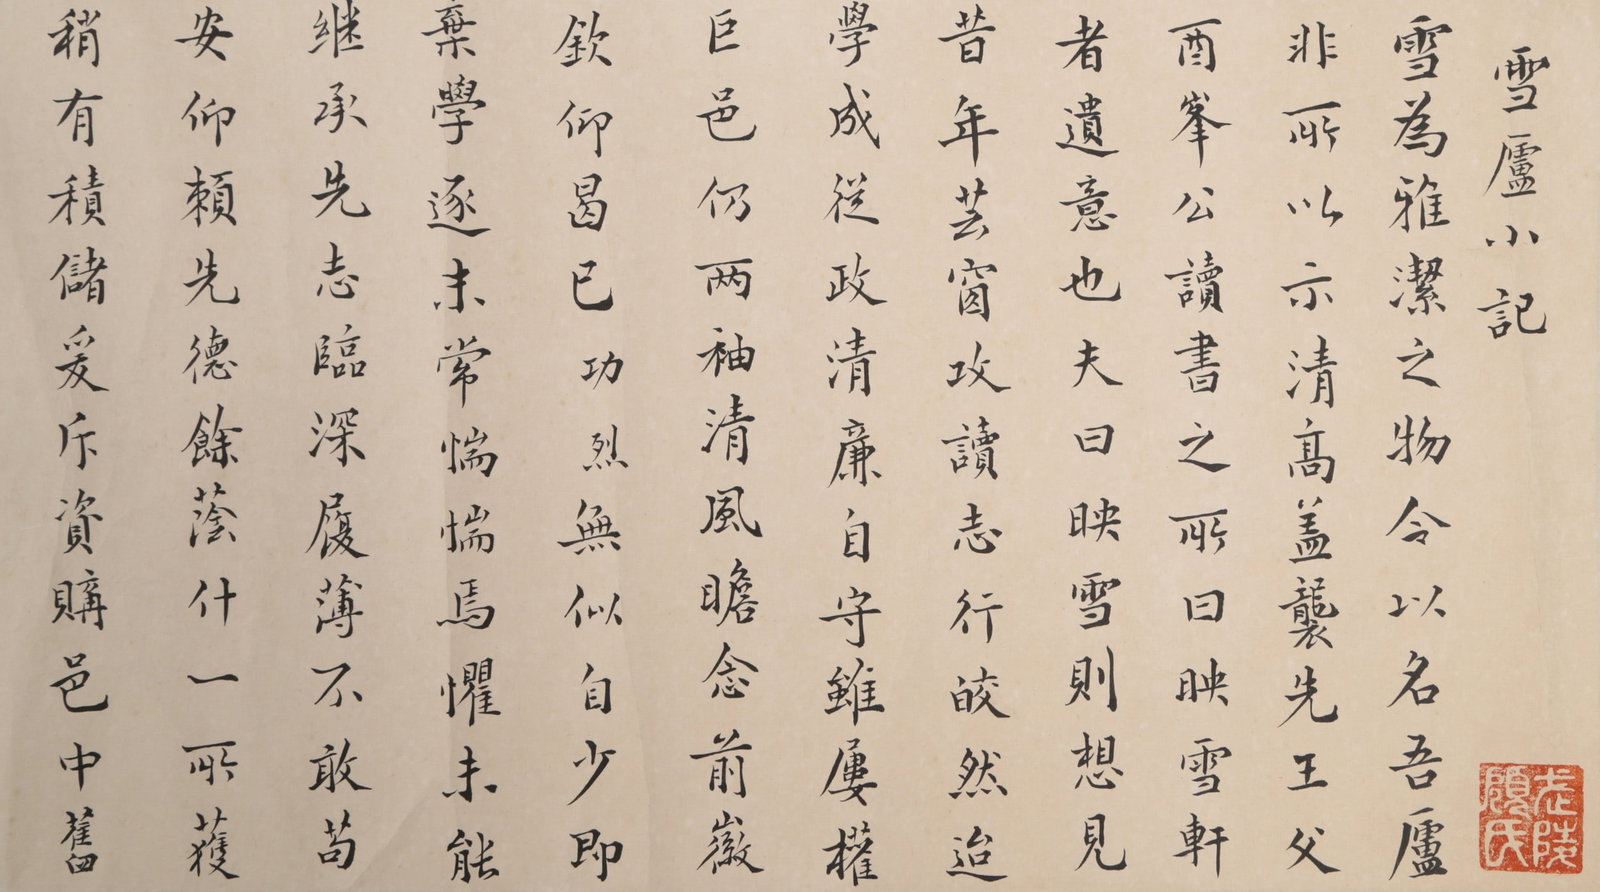 雪廬小記
雪為雅潔之物今以名吾廬
非所以示清高盖襲先王父
酉峯公讀書之所曰映雪軒
者遺意也夫曰映雪則想見
昔年芸窗攻讀志行皎然迨
學成從政清廉自守雖屢權
巨邑仍两袖清風瞻念前徽
欽仰曷已功烈無似自少即
棄學逐末常惴惴焉懼未能
継承先志臨深履薄不敢苟
安仰賴先德餘蔭什一所獲
稍有積儲爰斥資購邑中舊
武陵
顧氏